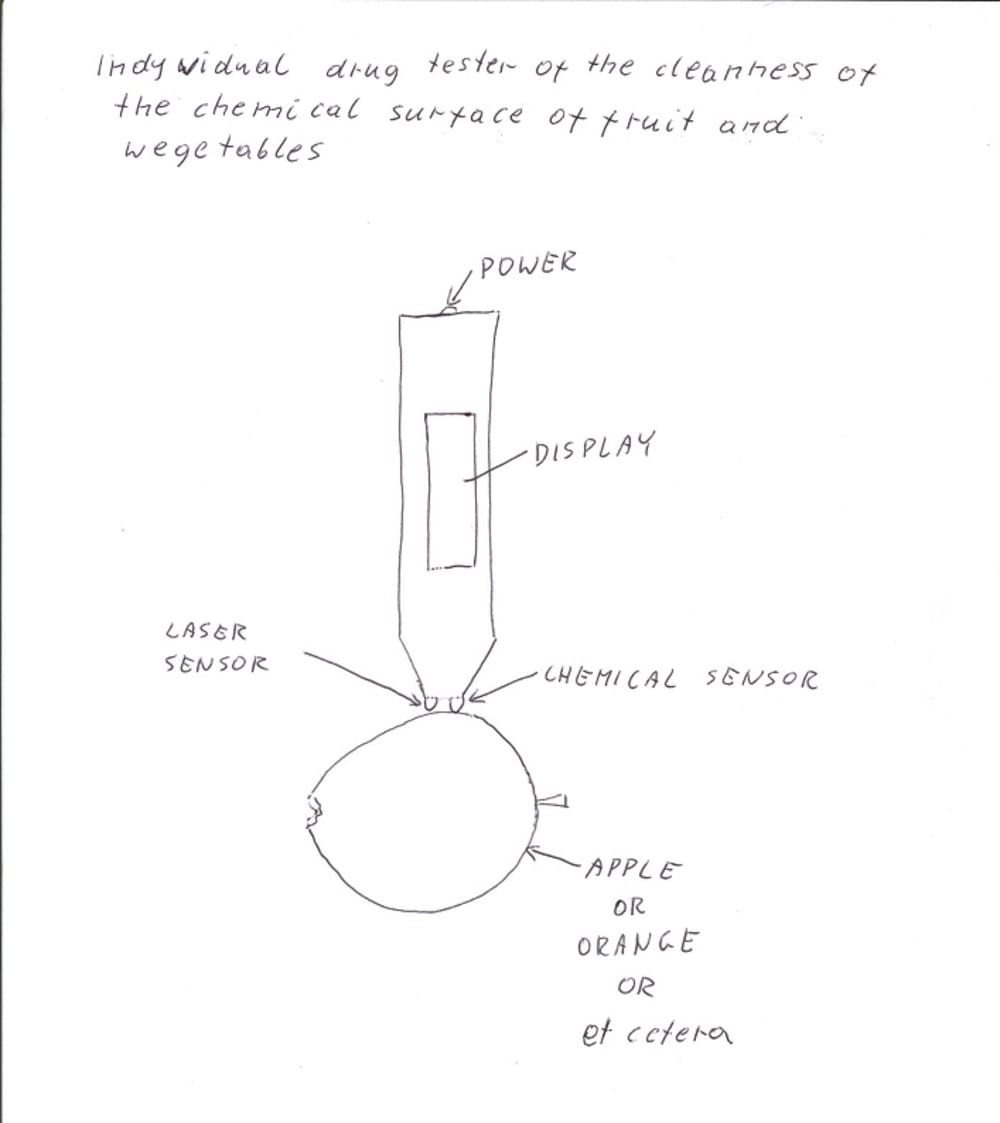 Indywidual drug tester of the cleanness of
the chemical surface of fruit and
wegetables
POWER
DISPLAY
LASER
SENSOR
CHEMICAL SENSOR
APPLE
OR
ORANGE
OR
et cetera